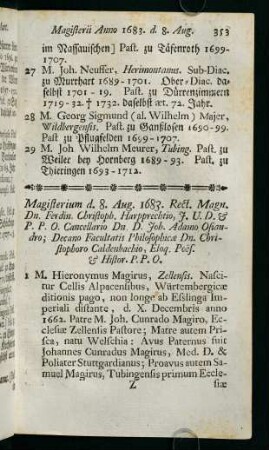 Magisterii Anno 1683. d. 8. Aug. 353
im Nassauischen) Past. zu Täfenroth 1699-
1707.
27 M. Joh. Neuffer, Herimontanus. Sub-Diac.
zu Murrhart 1689-1701. Ober-Diac. da-
selbst 1701-19. Past. zu Dürrenzimmern
1719-32. † 1732. daselbst æt. 72. Jahr.
28 M. Georg Sigmund (al. Wilhelm) Majer,
Wildbergensis. Past. zu Ganßlosen 1690-99.
Past. zu Pflugfelden 1699-1707.
29 M. Joh. Wilhelm Meurer, Tubing. Past. zu
Weiler bey Hornberg 1689-93. Past. zu
Thieringen 1693-1712.
Magisterium d. 8. Aug. 1683. Rect. Magn.
Dn. Ferdin. Christoph. Harpprechtio, J. U. D. &
P. P. O. Cancellario Dn. D. Joh. Adamo Osian-
dro; Decano Facultatis Philosophicæ Dn. Chri-
stophoro Caldenbachio, Eloq. Poës.
& Histor. P. P. O.
1 M. Hieronymus Magirus, Zellensis. Nasci-
tur Cellis Alpacensibus, Würtembergicæ
ditionis pago, non longe ab Eßlinga Im-
periali distante, d. X. Decembris anno
1662. Patre M. Joh. Cunrado Magiro, Ec-
clesiæ Zellensis Pastore; Matre autem Pri-
sca, natu Welschia: Avus Paternus fuit
Johannes Cunradus Magirus, Med. D. &
Poliater Stuttgardianus; Proavus autem Sa-
muel Magirus, Tubingensis primum Eccle-
Z siæ